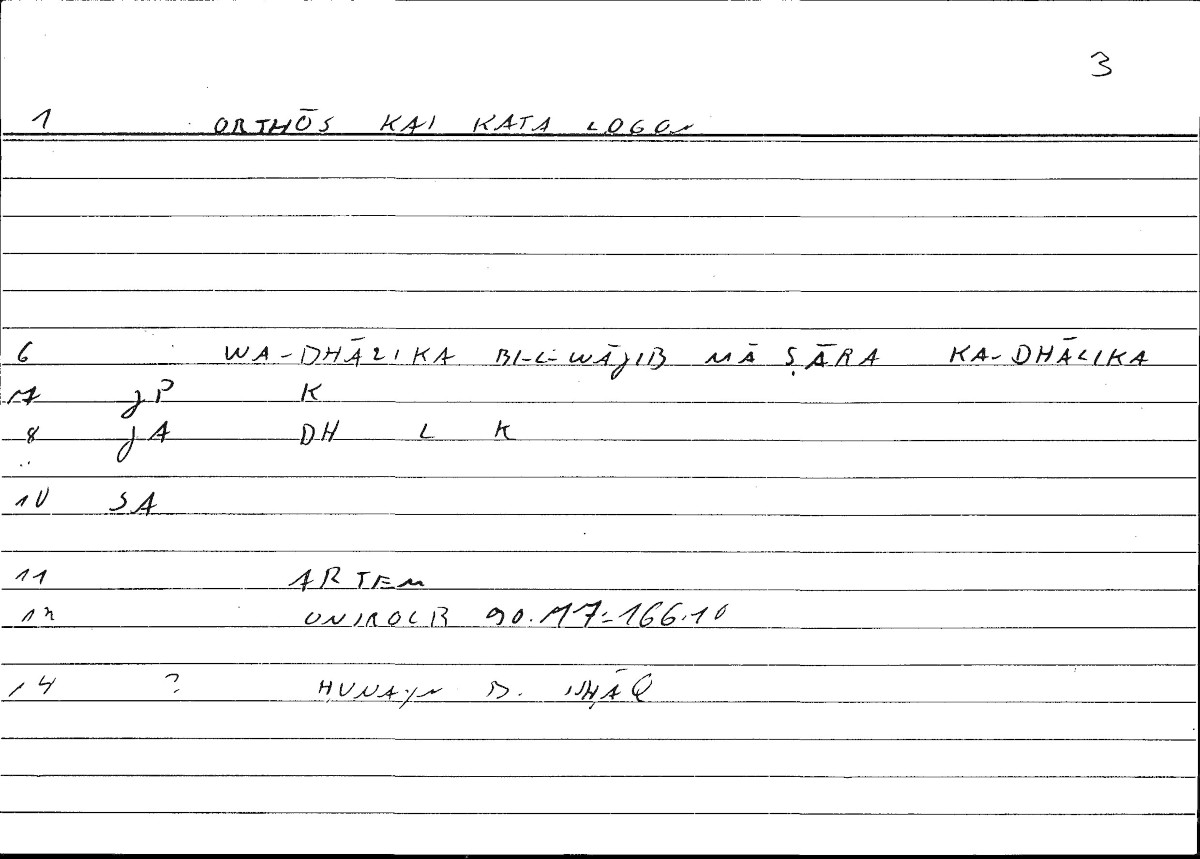 3
1 ORTHŌS KAI KATA LOGON
6 WA-DHĀLIKA BI-L-WĀJIB MĀ ṢĀRA KA-DHĀLIKA
7 JP K
8 JA DH L K
10 SA
11 ARTEM
ONIROCR 90.17-166.10
14 ? ḤUNAYN B. ISḤĀQ